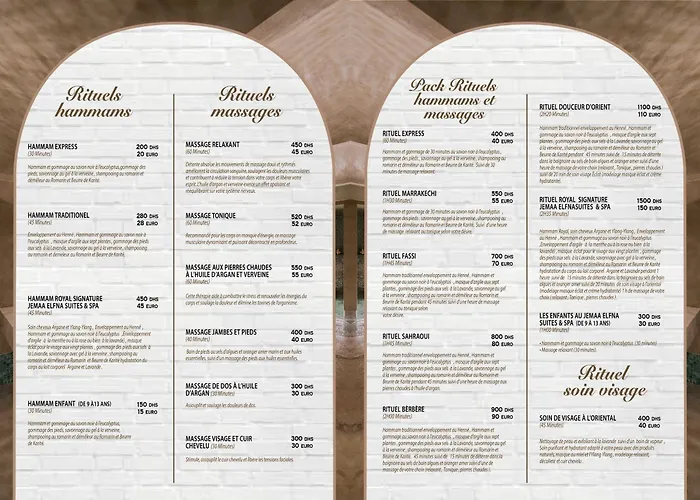 Rituels
hammams
HAMMAM EXPRESS 200 DHS
(30 Minutes) 20 EURO
Hammam et gommage au savon noir à l'eucalyptus,gommage des
pieds, savonnage au gel à la verveine , shampooing au romarin et
démêleur au Romarin et Beurre de Karité.
HAMMAM TRADITIONEL 280 DHS
(45 Minutes) 28 EURO
Enveloppement au Henné , Hammam et gommage au savon noir à
l'eucalyptus , masque d'argile aux sept plantes , gommage des pieds
aux sels à la Lavande, savonnage au gel à la verveine, shampooing
au romarin et démêleur au Romarin et Beurre de Karité.
HAMMAM ROYAL SIGNATURE 450 DHS
JEMAA ELFNA SUITES & SPA 45 EURO
(45 Minutes)
Soin cheveux Argane et Ylang-Ylang , Enveloppement au Henné ,
Hammam et gommage au savon noir à l'eucalyptus
HAMMAM ENFANT (DE 9 À 13 ANS) 150 DHS
(30 Minutes) 15 EURO
Hammam et gommage au savon noir à l'eucalyptus, gommage des
pieds aux sels à la Lavande, savonnage au gel à la verveine,
shampooing au romarin et démêleur au Romarin et Beurre
de Karité.
Rituels
massages
MASSAGE RELAXANT 450 DHS
(60 Minutes) 45 EURO
Détente absolue les mouvements de massage doux et rythmés
améliorent la circulation sanguine, soulagent les douleurs musculaires
et contribuent à réduire la tension dans votre corps et libérer votre
esprit. L'huile d'argan et verveine exerce un effet apaisant et
rééquilibrant sur votre système nerveux.
MASSAGE TONIQUE 520 DHS
(60 Minutes) 52 EURO
Recommandé pour les corps en manque d'énergie, ce massage
musculaire dynamisant et puissant décontracte en profondeur.
MASSAGE AUX PIERRES CHAUDES 550 DHS
À L'HUILE D'ARGAN ET VERVEINE 55 EURO
(60 Minutes)
Cette thérapie aide à combattre le stress et renouveler les énergies du
corps et soulage la douleur et élimine les toxines de l'organisme.
MASSAGE JAMBES ET PIEDS 400 DHS
(40 Minutes) 40 EURO
Bain de pieds au sels d'algues et orange amer marin et aux huiles
essentielles, suivi d'un massage des pieds aux huile essentielles.
MASSAGE DE DOS À L'HUILE 300 DHS
D'ARGAN (30 Minutes) 30 EURO
Assouplit et soulage les douleurs de dos.
MASSAGE VISAGE ET CUIR 300 DHS
CHEVELU (30 Minutes) 30 EURO
Stimule, assouplit le cuir chevelu et libère les tensions faciales.
Pack Rituels
hammams et
massages
RITUEL EXPRESS 400 DHS
(60 Minutes) 40 EURO
Hammam et gommage de 30 minutes au savon noir à l'eucalyptus ,
gommage des pieds, savonnage au gel à la verveine , shampooing
au romarin et démêleur au Romarin et Beurre de Karité. Suivi de 30
minutes de massage relaxant.
RITUEL MARRAKECHI 550 DHS
(1H00 Minutes) 55 EURO
Hammam et gommage de 30 minutes au savon noir à l'eucalyptus ,
gommage des pieds aux sels à la Lavande, savonnage au gel à la
verveine, shampooing au romarin et démêleur au Romarin et Beurre de Karité. Suivi d'une heure
de massage relaxant ou tonique selon votre désire.
RITUEL FASSI 700 DHS
(1H45 Minutes) 70 EURO
Hammam traditionnel enveloppement au Henné , Hammam et
gommage au savon noir à l'eucalyptus , masque d'argile aux sept
plantes , gommage des pieds aux sels à la Lavande, savonnage au gel
à la verveine, shampooing au romarin et démêleur au Romarin et
Beurre de Karité pendant 45 minutes suivi d'une heure de massage
relaxant ou tonique selon
votre désire.
RITUEL SAHRAOUI 800 DHS
(1H45 Minutes) 80 EURO
Hammam traditionnel enveloppement au Henné , Hammam et
gommage au savon noir à l'eucalyptus , masque d'argile aux sept
plantes , gommage des pieds aux sels à la Lavande, savonnage au gel
à la verveine, shampooing au romarin et démêleur au Romarin et
Beurre de Karité pendant 45 minutes suivi d'une heure de massage aux
pierres chaudes à l'huile d'Argane.
RITUEL BÉRBÈRE 900 DHS
90 EURO
Hammam traditionnel enveloppement au Henné , Hammam et
gommage au savon noir à l'eucalyptus , masque d'argile aux sept
plantes , gommage des pieds aux sels à la Lavande, savonnage au gel
à la verveine, shampooing au romarin et démêleur au Romarin et
Beurre de Karité, 45 minutes suivi de 15 minutes détente dans la
baignoire au sels de bain algues et oranger amer suivi d'une
de massage à votre choix (relaxant, Tonique, pierres chaudes ) .
RITUEL DOUCEUR D'ORIENT 1100 DHS
(2H20 Minutes) 110 EURO
Hammam traditionnel enveloppement au Henné , Hammam et
gommage au savon noir à l'eucalyptus , masque d'argile aux sept
plantes , gommage des pieds aux sels à la Lavande, savonnage au gel à
la verveine, shampooing au romarin et démêleur au Romarin et
Beurre de Karité pendant 45 minutes suivi de 15 minutes de détente
dans la baignoire au sels de bain algues et oranger amer suivi d'une
heure de massage à votre choix (relaxant, Tonique, pierres chaudes )
RITUEL ROYAL SIGNATURE 1500 DHS
JEMAA ELFNASUITES & SPA 150 EURO
(2H35 Minutes)
Hammam Royal, soin cheveux Argane et Ylang-Ylang , Enveloppement
au Henné , Hammam et gommage au savon noir à l'eucalyptus
LES ENFANTS AU JEMAA ELFNA 300 DHS
SUITES & SPA (DE 9 À 13 ANS) 30 EURO
• Hammam et gommage au savon noir à l'eucalyptus. (30 minutes)
• Massage relaxant (30 minutes).
Rituel
soin visage
SOIN DE VISAGE À L'ORIENTAL 400 DHS
(45 Minutes) 40 EURO
Nettoyage de peau et exfoliant à la lavande suivi d'un bain de vapeur , Soin
purifiant et hydratant adapté à votre peau avec des produits